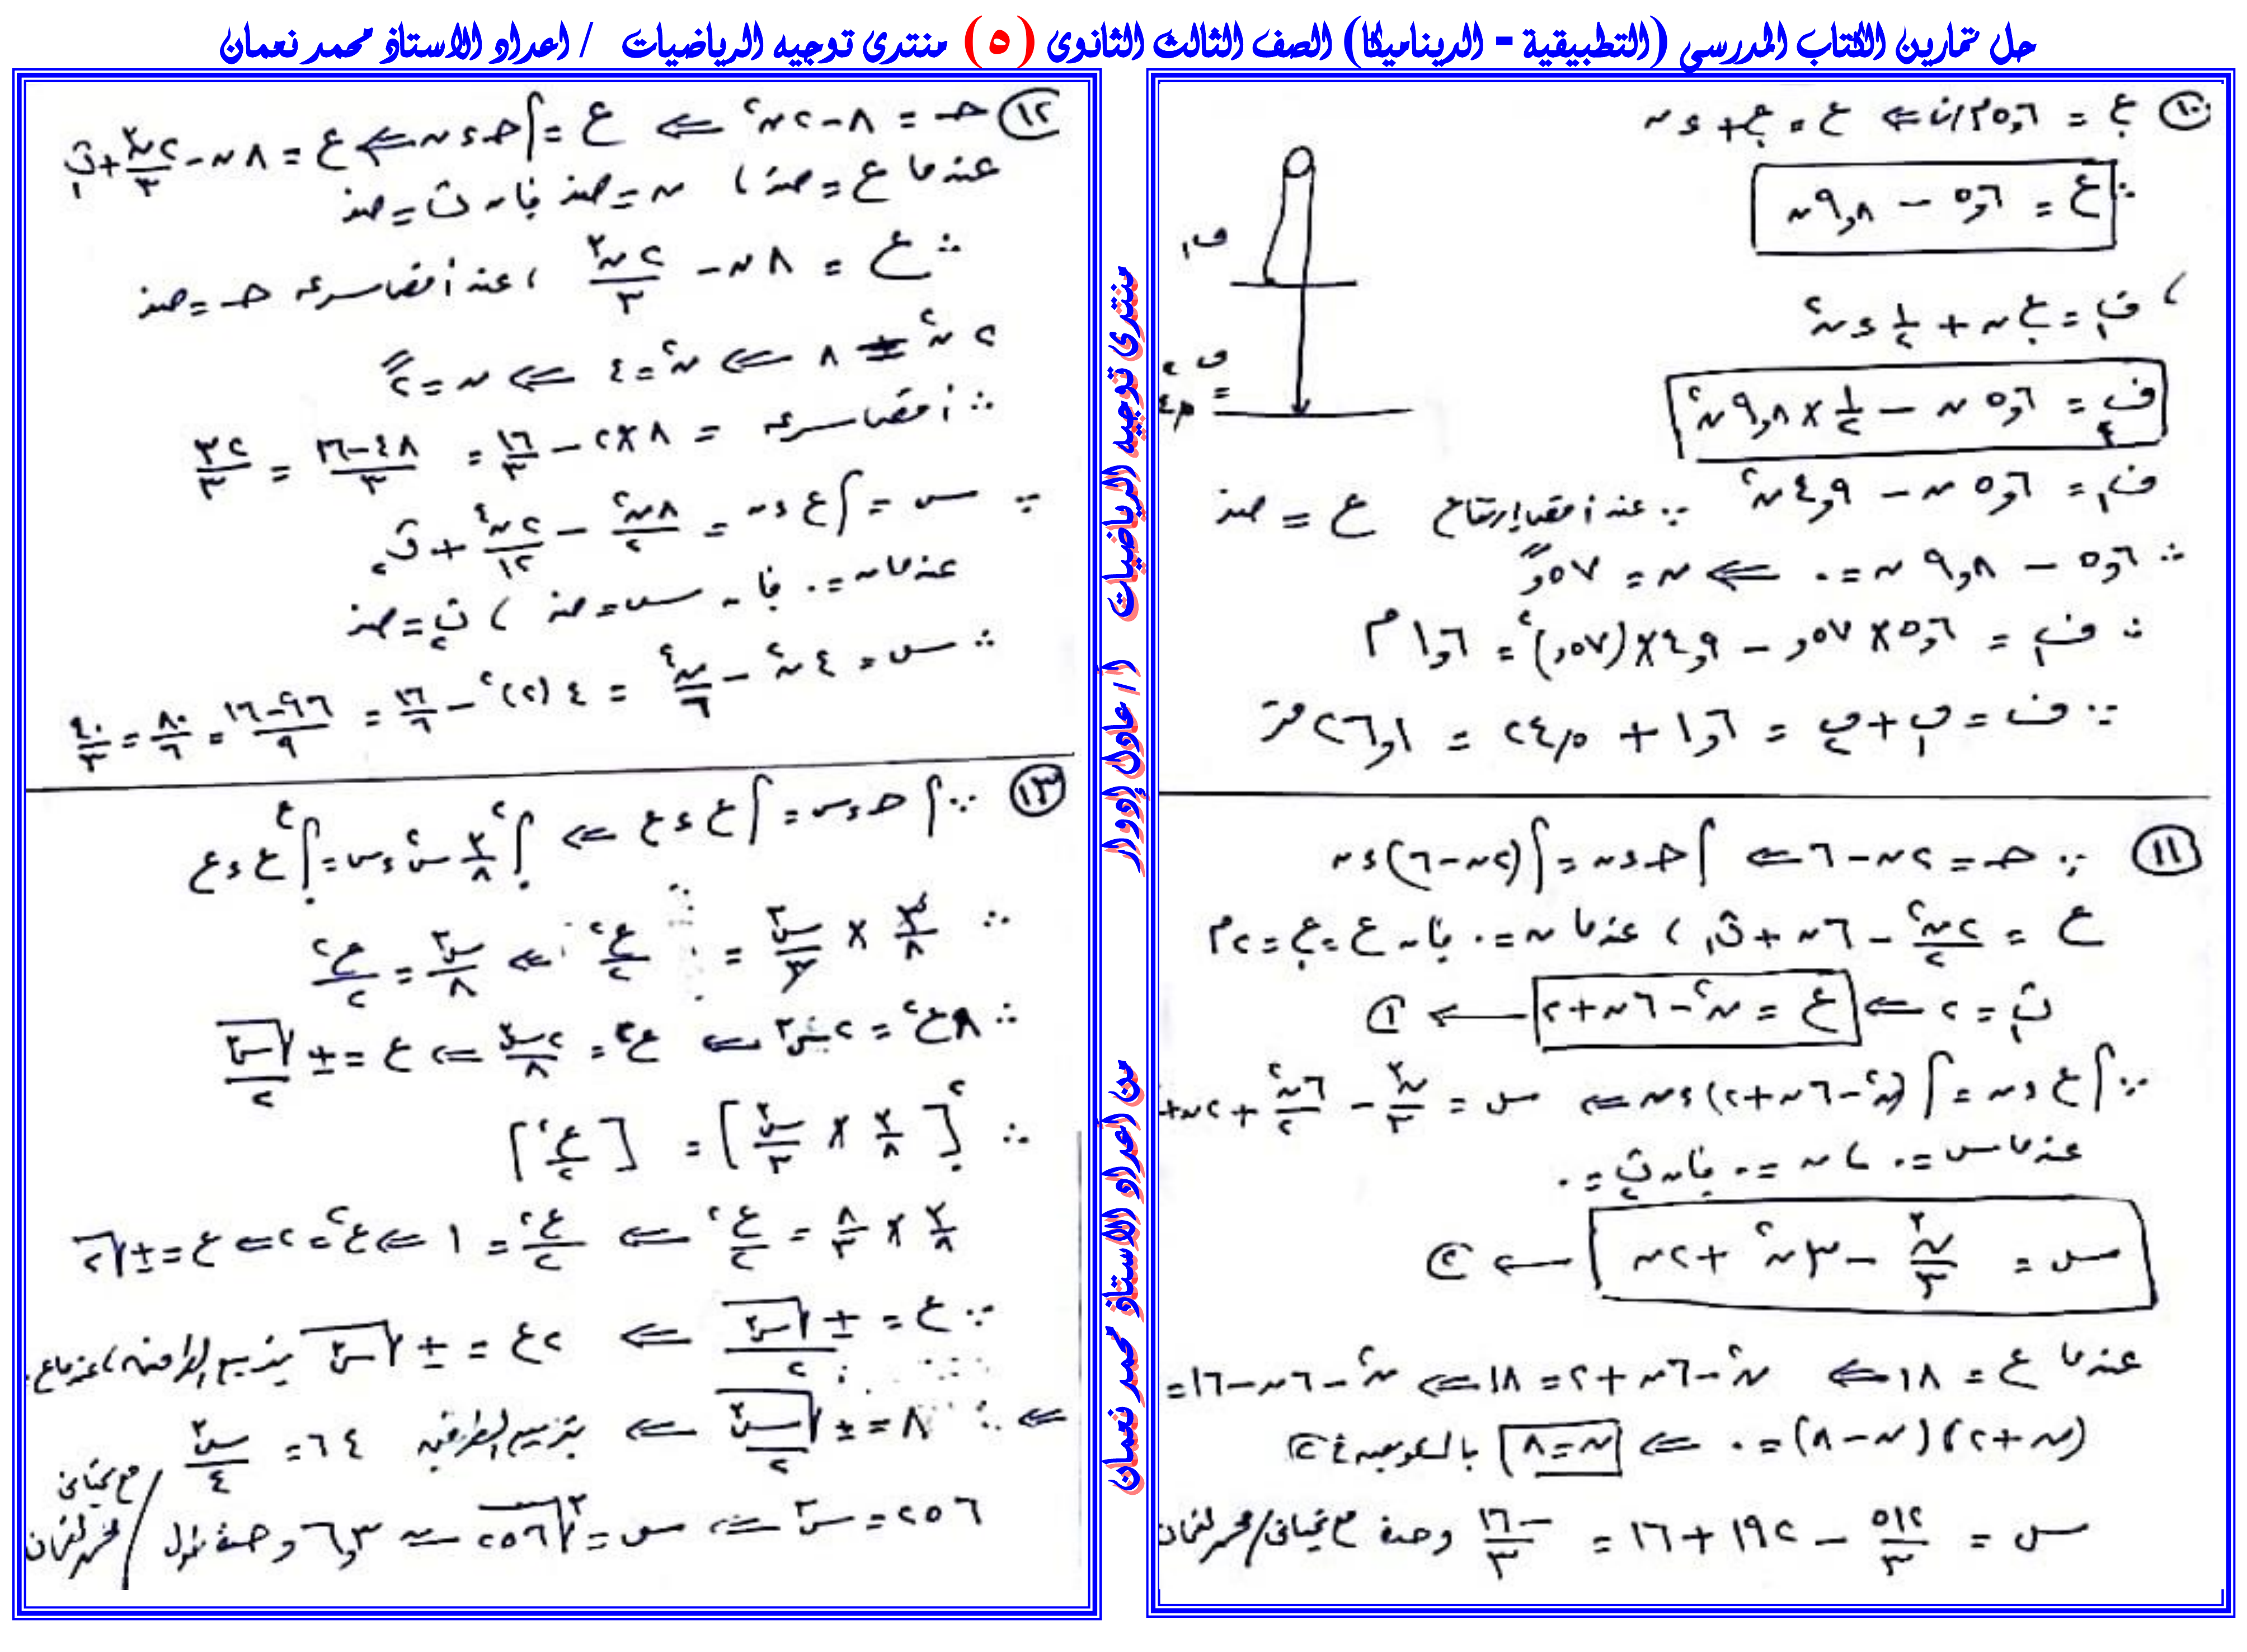 حل تمارين الكتاب المدرسي (التطبيقية - الديناميكا) الصف الثالث الثانوى (٥) منتدى توجيه الرياضيات / اعداد الاستاذ محمد نعمان
١٠ ع. = ٥,٦ م/ث ⇐ ع = ع. + د ن
∴ ع = ٥,٦ − ٩,٨ ن
، ف١ = ع. ن + ١/٢ د ن٢
ف١ = ٥,٦ ن − ١/٢ × ٩,٨ ن٢
ف١ = ٥,٦ ن − ٤,٩ ن٢ ∵ عند أقصى إرتفاع ع = صفر
∴ ٥,٦ − ٩,٨ ن = ٠ ⇐ ن = ٥٧,ً
∴ ف١ = ٥,٦ × ٥٧, − ٤,٩ × (٥٧,)٢ = ١,٦ م
∵ ف = ف١ + ف٢ = ١,٦ + ٢٤,٥ = ٢٦,١ متر
ف١
ف٢
=
١١ ∵ حـ = ٢ن − ٦ ⇐ ∫ حـ د ن = ∫ (٢ن − ٦) د ن
ع = ٢ن٢/٢ − ٦ن + ث١ ، عندما ن = ٠ فإن ع = ع. = ٢ م
ث١ = ٢ ⇐ ع = ن٢ − ٦ن + ٢ ← ①
∵ ∫ ع د ن = ∫ (ن٢ − ٦ن + ٢) د ن ⇐ س = ن٣/٣ − ٦ن٢/٢ + ٢ن +
عندما س = ٠ ، ن = ٠ فإن ث٢ = ٠
س = ن٣/٣ − ٣ن٢ + ٢ن ← ②
عندما ع = ١٨ ⇐ ن٢ − ٦ن + ٢ = ١٨ ⇐ ن٢ − ٦ن − ١٦ =
(ن + ٢)(ن − ٨) = ٠ ⇐ ن = ٨ بالتعويض فى ②
س = ٥١٢/٣ − ١٩٢ + ١٦ = −١٦/٣ وحدة
١٢ حـ = ٨ − ٢ن٢ ⇐ ع = ∫ حـ د ن ⇐ ع = ٨ن − ٢ن٣/٣ + ث١
عندما ع = صفر ، ن = صفر فإن ث = صفر
∴ ع = ٨ن − ٢ن٣/٣ ، عند أقصى سرعه حـ = صفر
٢ن٢ = ٨ ⇐ ن٢ = ٤ ⇐ ن = ٢ً
∴ أقصى سرعه = ٨ × ٢ − ١٦/٣ = ٤٨−١٦/٣ = ٣٢/٣
∵ س = ∫ ع د ن = ٨ن٢/٢ − ٢ن٤/١٢ + ث٢
عندما ن = ٠ فإن س = صفر ، ث٢ = صفر
∴ س = ٤ن٢ − ن٤/٦ = ٤(٢)٢ − ١٦/٦ = ٩٦−١٦/٩ = ٨٠/٦ = ٤٠/٣
١٣ ∵ ∫ حـ د س = ∫ ع د ع ⇐ ∫ ٣/٨ س٢ د س = ∫ ع د ع
∴ ٣/٨ × س٣/٣ = ع٢/٢ ⇐ س٣/٨ = ع٢/٢
∴ ٨ع٢ = ٢س٣ ⇐ ع٢ = ٢س٣/٨ ⇐ ع = ± √س٣/٢
∴ [٣/٨ × س٣/٣] = [ع٢/٢]
٣/٨ × ٨/٣ = ع٢/٢ ⇐ ع٢/٢ = ١ ⇐ ع٢ = ٢ ⇐ ع = ± √٢
∵ ع = ± √س٣/٢ ⇐ ٢ع = ± √س٣ بتربيع الطرفين ، عندما ع
⇐ ∴ ٨ = ± √س٣/٢ ⇐ بتربيع الطرفين ٦٤ = س٣/٤
٢٥٦ = س٣ ⇐ س = ∛٢٥٦ ≃ ٦,٣ وحدة طول
منتدى توجيه الرياضيات أ / عادل إدوار
من اعداد الاستاذ محمد نعمان